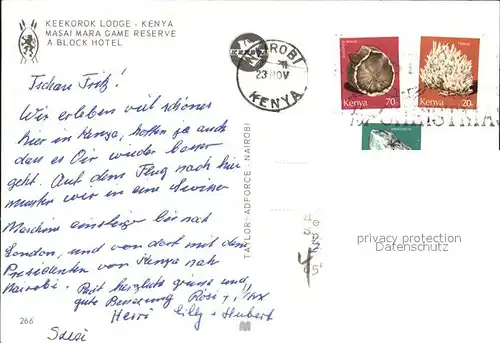 KEEKOROK LODGE - KENYA
MASAI MARA GAME RESERVE
A BLOCK HOTEL
NAIROBI
23 NOV
KENYA
Kenya 70c
Kenya 20c
Tschau Fritz!
Wir erleben viel schönes
hier in Kenya, hoffen ja auch
dass es Dir wieder besser
geht. Auf dem Flug nach hier
mussten wir in eine Swiser
Maschine einsteigen bis nach
London, und von dort mit dem
Presidenten von Kenya nach
Nairobi. Recht herzliche grüsse und
gute Besserung Rösi
Heiri Lilly + Hubert
Susi
TAYLOR-ADFORCE - NAIROBI
266
privacy protection
Datenschutz